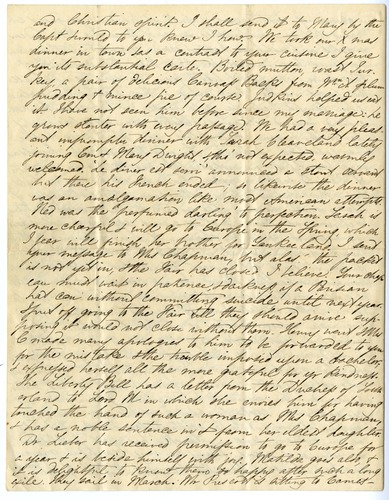 and Christian spirit. I shall send it to Mary by the
Capt. wrote to you know how. We took our X mas
dinner in town & as a contrast to your cuisine I give
you its substantial carte. Boiled mutton, roast Tur-
key, a pair of delicious Canvas Backs from plum
pudding & mince pie of course. Judkins helped us in
it. I have not seen him before since my message; he
grows stouter with every passage. We had a very pleas-
ant impromptu dinner with Sarah Cleaveland lately
joining Em & Mary Dwight & this not expected was
welcomed. le diner est servi announced a stout
but there his French ended; so likewise the dinner
was an amalgamation like most American attempts.
Ned was the perfumed darling to perfection. Sarah is
more cheerful & will go to Europe in the Spring which
I fear will finish her Mother for Yankee land. I send
your message to Mrs Chapman, but alas the packet
is not yet in & the Fair has closed I believe. Your
must wait in patience & darkness if a Parisian
hat can without committing suicide until next year
I put off going to the Fair till they should arrive sup-
posing it would not close without them. Henry went Mrs
C made many apologies to him to be forwarded to you
for the mistake & the trouble imposed upon a bachelor.
I expressed herself all the more grateful for yr kindness.
The Liberty Bell has a letter from the Duchess of Suth-
erland to Lord M in which she envies him for having
touched the hand of such a woman as Mrs Chapman
& has a noble sentence in it from her eldest daughter
Dr Lieber has received permission to go to Europe for
a year, & is beside himself with joy. Matilda goes also, &
it is delightful to know them so happy after such a long
exile. They sail in March. Mr Prescott is sitting to